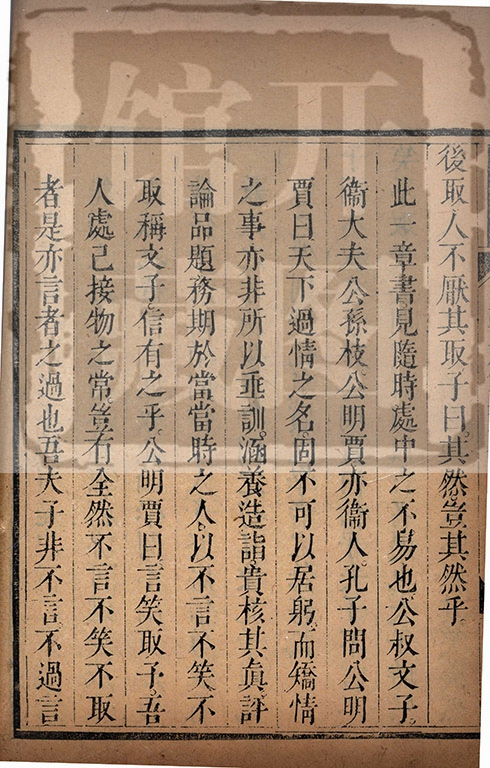 後取人不厭其取子曰其然豈其然乎
此一章書見隨時處中之不易也公叔文子
衞大夫公孫枝公明賈亦衞人孔子問公明
賈曰天下過情之名固不可以居躬而矯情
之事亦非所以垂訓涵養造詣貴核其眞評
論品題務期於當當時之人以不言不笑不
取稱文子信有之乎公明賈曰言笑取予吾
人處己接物之常豈有全然不言不笑不取
者是亦言者之過也吾夫子非不言不過言